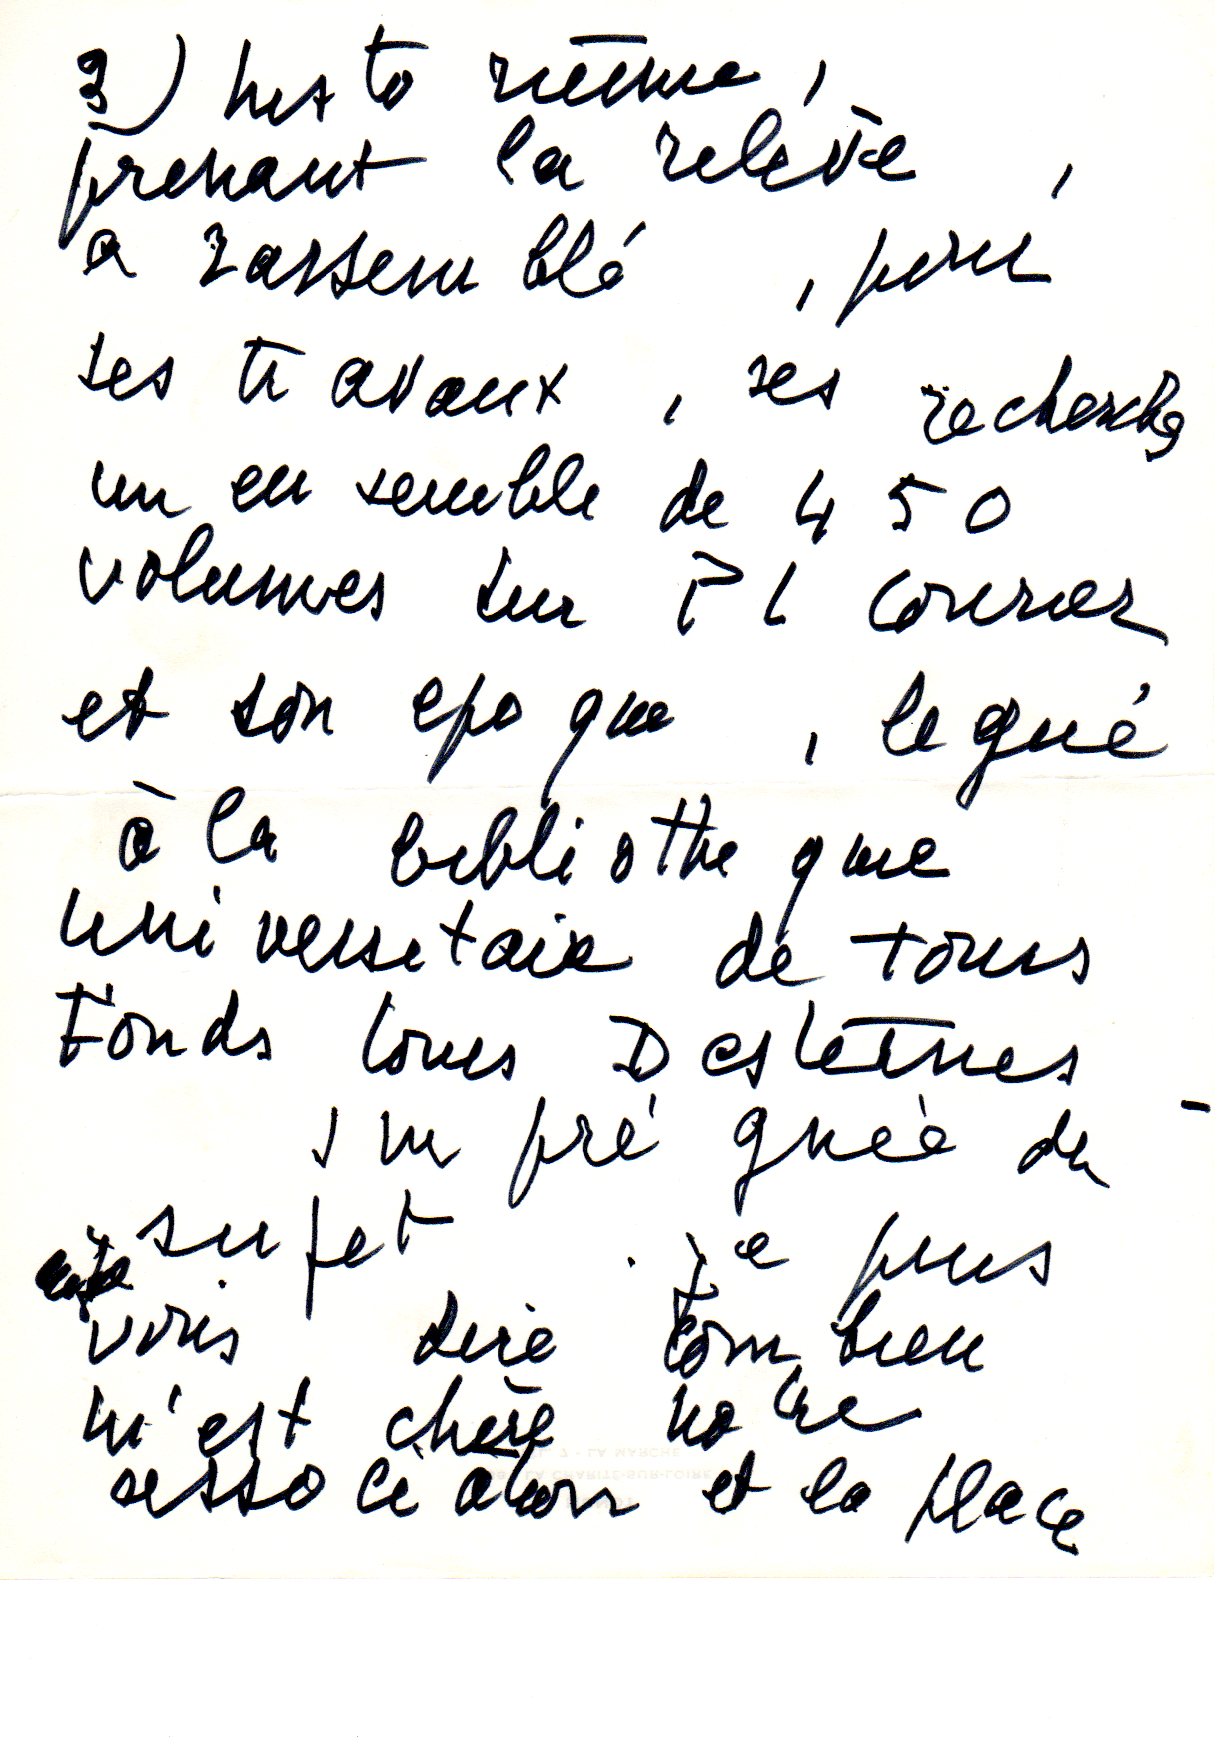 3) historienne,
prenant la relève,
a rassemblé, pour
ses travaux, ses recherches
un ensemble de 450
volumes sur PL Courier
et son epoque, legué
à la bibliotheque
universitaire de Tours
Fonds Louis Desternes -
Imprégnée du
sujet. je puis
vous dire combien
m'est chère notre
association et la place